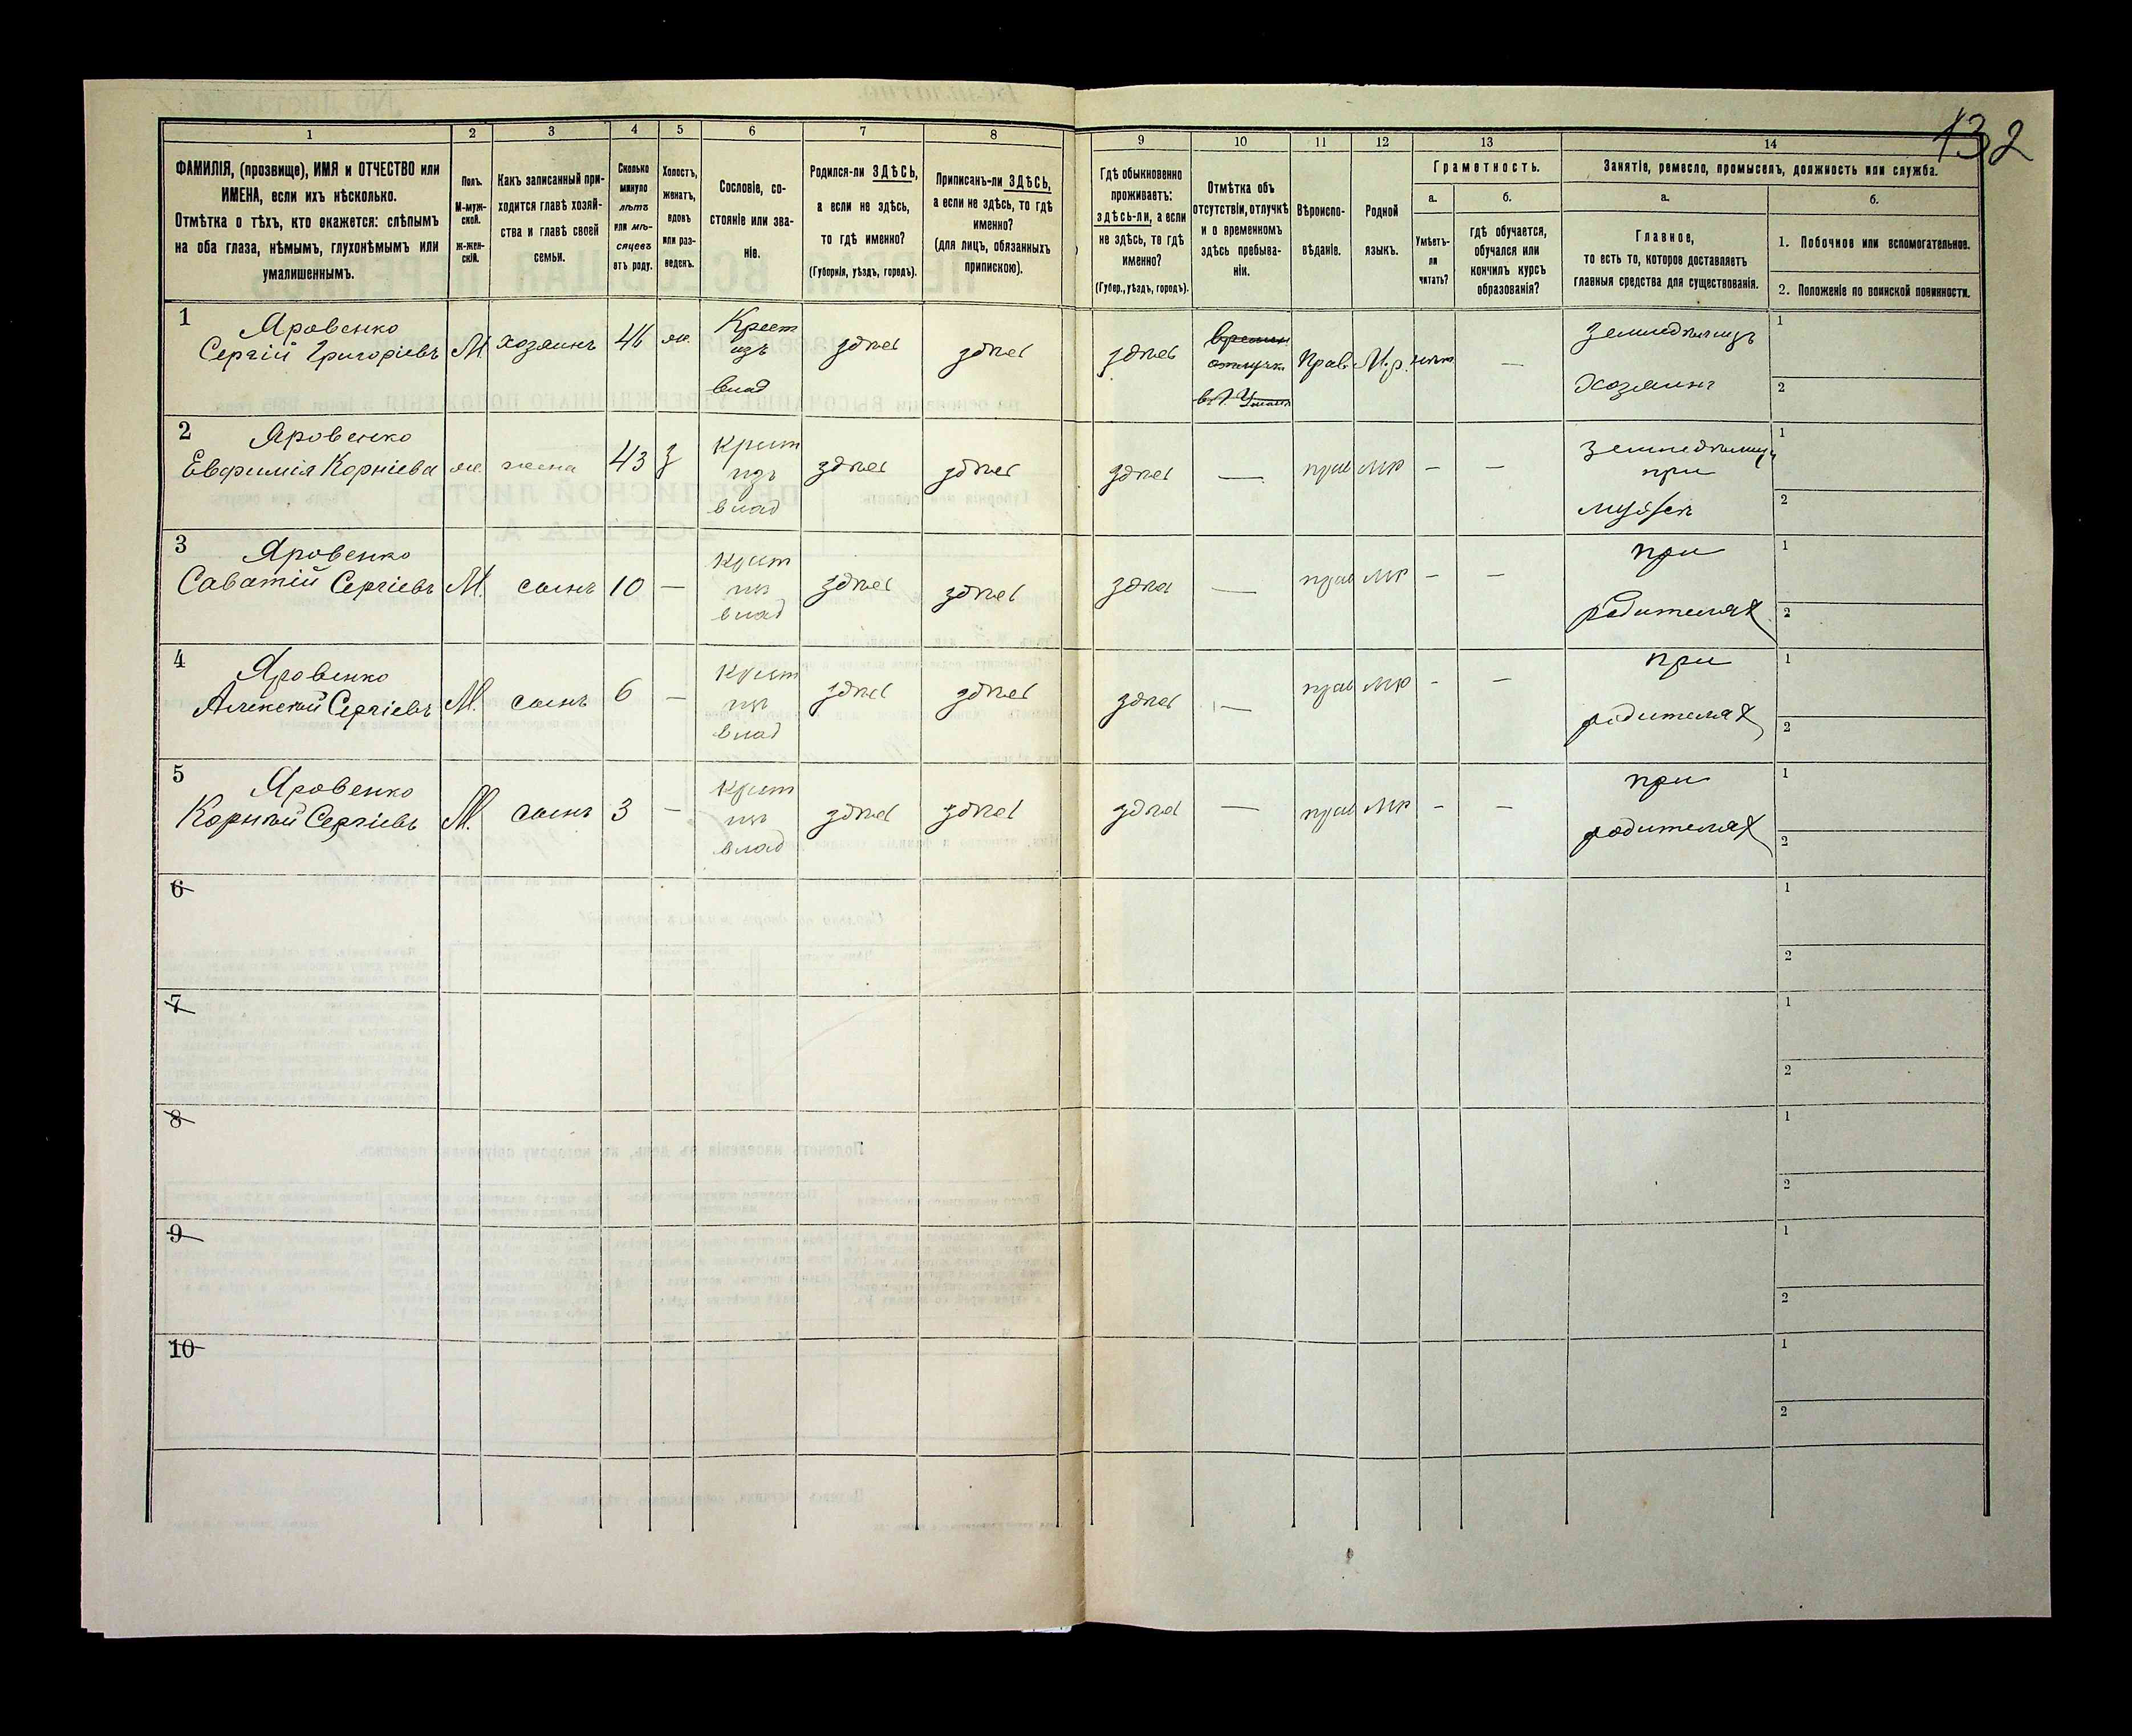 132
1 2 3 4 5 6 7 8 9 10 11 12 13 14
ФАМИЛІЯ, (прозвище), ИМЯ и ОТЧЕСТВО или
ИМЕНА, если ихъ нѣсколько.
Отмѣтка о тѣхъ, кто окажется: слѣпымъ
на оба глаза, нѣмымъ, глухонѣмымъ или
умалишеннымъ.
Полъ.
М-муж-
ской.
ж-жен-
скій.
Какъ записанный при-
ходится главѣ хозяй-
ства и главѣ своей
семьи.
Сколько
минуло
лѣтъ
или мѣ-
сяцевъ
отъ роду.
Холостъ,
женатъ,
вдовъ
или раз-
веденъ.
Сословіе, со-
стояніе или зва-
ніе.
Родился-ли ЗДѢСЬ,
а если не здѣсь,
то гдѣ именно?
(Губернія, уѣздъ, городъ).
Приписанъ-ли ЗДѢСЬ,
а если не здѣсь, то гдѣ
именно?
(для лицъ, обязанныхъ
припискою).
Гдѣ обыкновенно
проживаетъ:
здѣсь-ли, а если
не здѣсь, то гдѣ
именно?
(Губер., уѣздъ, городъ).
Отмѣтка объ
отсутствіи, отлучкѣ
и о временномъ
здѣсь пребыва-
ніи.
Вѣроиспо-
вѣданіе.
Родной
языкъ.
Грамотность.
а.
Умѣетъ-
ли
читать?
б.
гдѣ обучается,
обучался или
кончилъ курсъ
образованія?
Занятіе, ремесло, промыселъ, должность или служба.
а.
Главное,
то есть то, которое доставляетъ
главныя средства для существованія.
б.
1. Побочное или вспомогательное.
2. Положеніе по воинской повинности.
1
Яровенко
Сергій Григоріевъ
М
хозяинъ
46
ж.
Крест
изъ
влад
здѣсь
здѣсь
здѣсь
времен
отлучк
Прав.
М.р.
нѣт
—
земледѣлецъ
Хозяинъ
1
2
2
Яровенко
Евфимія Корніева
ж.
жена
43
з
крест
изъ
влад
здѣсь
здѣсь
здѣсь
—
прав
мр
—
—
при
мужѣ
1
2
3
Яровенко
Саватій Сергіевъ
М.
сынъ
10
—
крест
из
влад
здѣсь
здѣсь
здѣсь
—
прав
мр
—
—
при
родителях
1
2
4
Яровенко
Алексѣй Сергіевъ
М.
сынъ
6
—
крест
из
влад
здѣсь
здѣсь
здѣсь
—
прав
мр
-
—
при
родителях
1
2
5
Яровенко
Корнѣй Сергіевъ
М.
сынъ
3
—
крест
из
влад
здѣсь
здѣсь
здѣсь
—
прав
мр
-
—
при
родителях
1
2
6
1
2
7
1
2
8
1
2
9
1
2
10
1
2